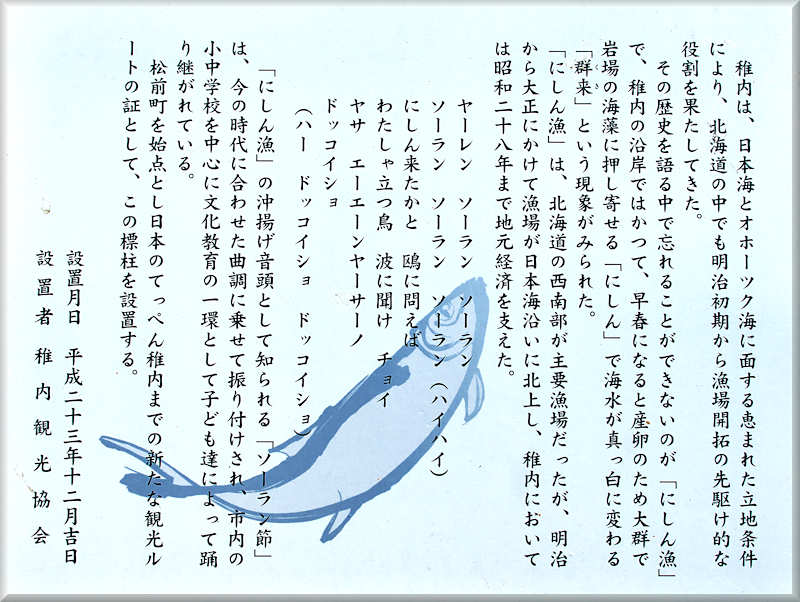 稚内は、日本海とオホーツク海に面する恵まれた立地条件
により、北海道の中でも明治初期から漁場開拓の先駆け的な
役割を果たしてきた。
その歴史を語る中で忘れることができないのが「にしん漁」
で、稚内の沿岸ではかつて、早春になると産卵のため大群で
岩場の海藻に押し寄せる「にしん」で海水が真っ白に変わる
「群来」という現象がみられた。
「にしん漁」は、北海道の西南部が主要漁場だったが、明治
から大正にかけて漁場が日本海沿いに北上し、稚内において
は昭和二十八年まで地元経済を支えた。
ヤーレン ソーラン ソーラン
ソーラン ソーラン ソーラン（ハイハイ）
にしん来たかと 鴎に問えば
わたしゃ立つ鳥 波に聞け チョイ
ヤサ エーエーンヤーサーノ
ドッコイショ
（ハー ドッコイショ ドッコイショ）
「にしん漁」の沖揚げ音頭として知られる「ソーラン節」
は、今の時代に合わせた曲調に乗せて振り付けされ、市内の
小中学校を中心に文化教育の一環として子ども達によって踊
り継がれている。
松前町を始点とし日本のてっぺん稚内までの新たな観光ル
ートの証として、この標柱を設置する。
設置月日 平成二十三年十二月吉日
設置者 稚内観光協会